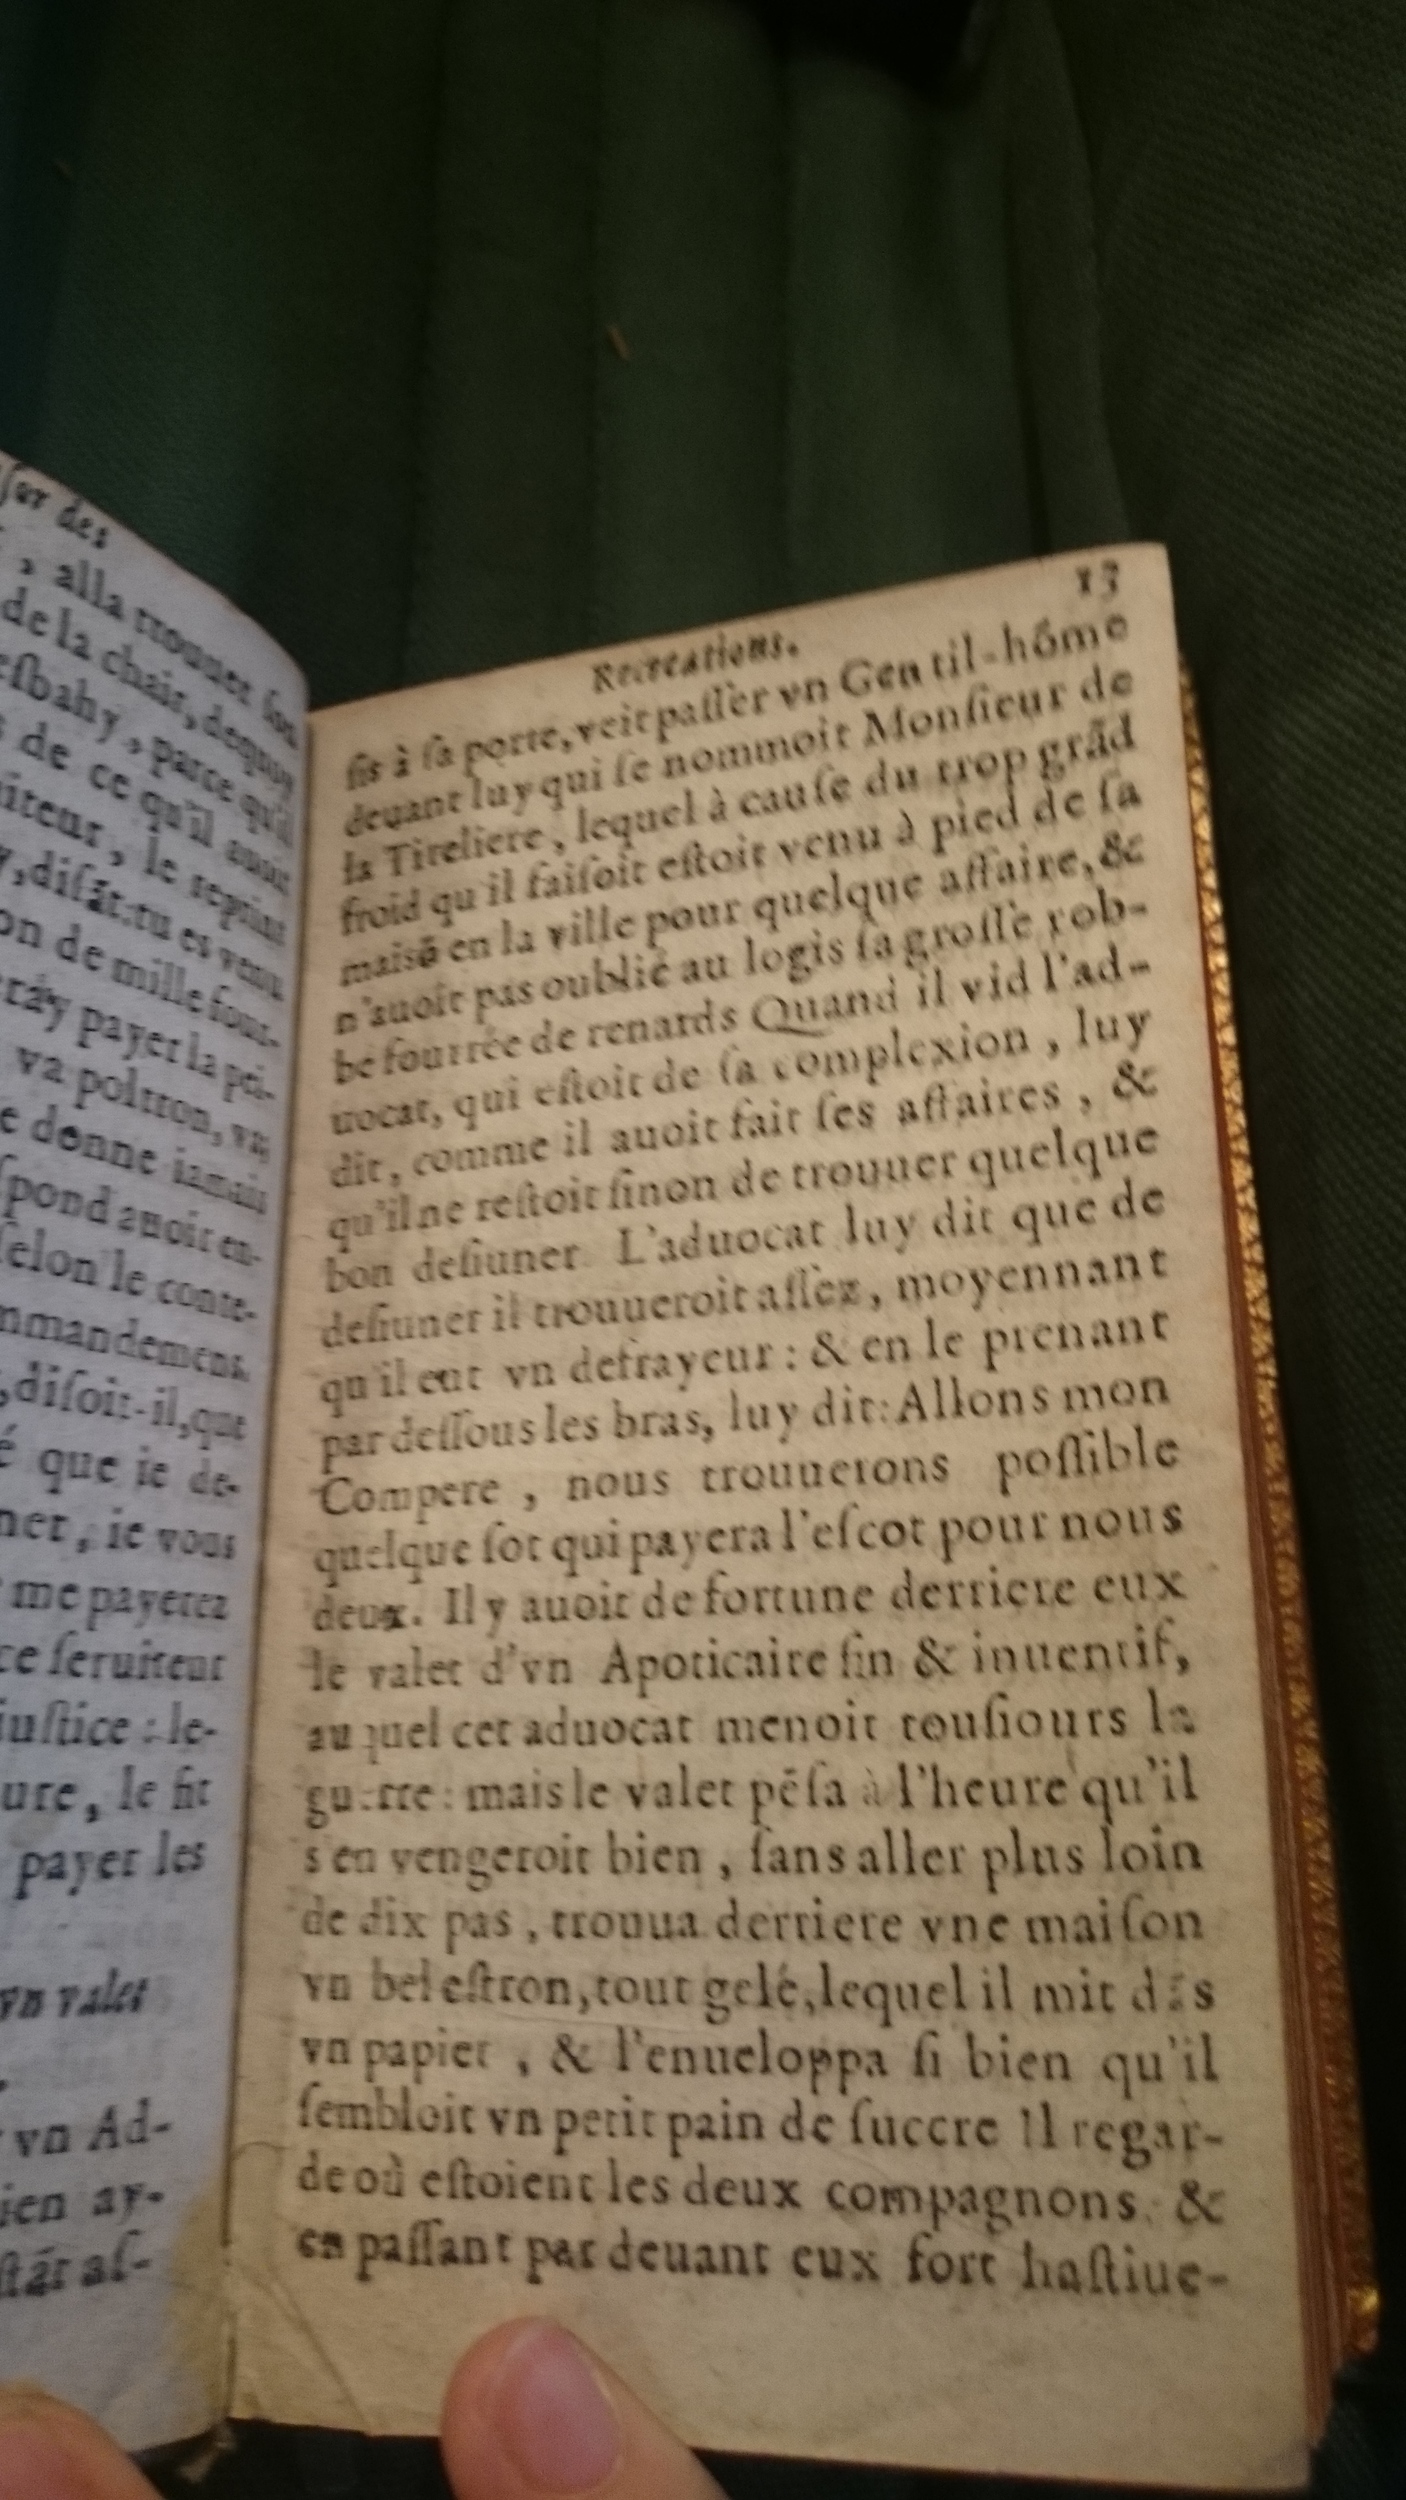 ſor des
, alla trouuer ſon
de la chair, dequoy
eſbahy, parce qu'il
de ce qu'il auoit
uiteur, le reprint
y, diſāt: tu es venu
on de mille four-
ray payer la pei-
va poltron, va,
e donne iamais
ſpond auoir en-
ſelon le conte-
mmandemens.
, diſoit-il, que
é que ie de-
ner, ie vous
me payerez
ce ſeruiteur
iuſtice: le-
ure, le fit
payer les
vn valet
vn Ad-
ien ay-
ſtāt aſ-
13
Recreations.
ſis à ſa porte, veit paſſer vn Gentil-hōme
deuant luy qui ſe nommoit Monſieur de
la Tireliere, lequel à cauſe du trop grād
froid qu'il faiſoit eſtoit venu à pied de ſa
maisō en la ville pour quelque affaire, &
n'auoit pas oublié au logis ſa groſſe rob-
be fourrée de renards Quand il vid l'ad-
uocat, qui eſtoit de ſa complexion, luy
dit, comme il auoit fait ſes affaires, &
qu'il ne reſtoit ſinon de trouuer quelque
bon deſiuner. L'aduocat luy dit que de
deſiuner il trouueroit aſſez, moyennant
qu'il eut vn defrayeur: & en le prenant
par deſſous les bras, luy dit: Allons mon
Compere, nous trouuerons poſſible
quelque ſot qui payera l'eſcot pour nous
deux. Il y auoit de fortune derriere eux
le valet d'vn Apoticaire fin & inuentif,
auquel cet aduocat menoit touſiours la
guerre: mais le valet pēſa à l'heure qu'il
s'en vengeroit bien, ſans aller plus loin
de dix pas, trouua derriere vne maiſon
vn bel eſtron, tout gelé, lequel il mit dās
vn papier, & l'enueloppa ſi bien qu'il
ſembloit vn petit pain de ſuccre Il regar-
de où eſtoient les deux compagnons. &
en paſſant par deuant eux fort haſtiue-